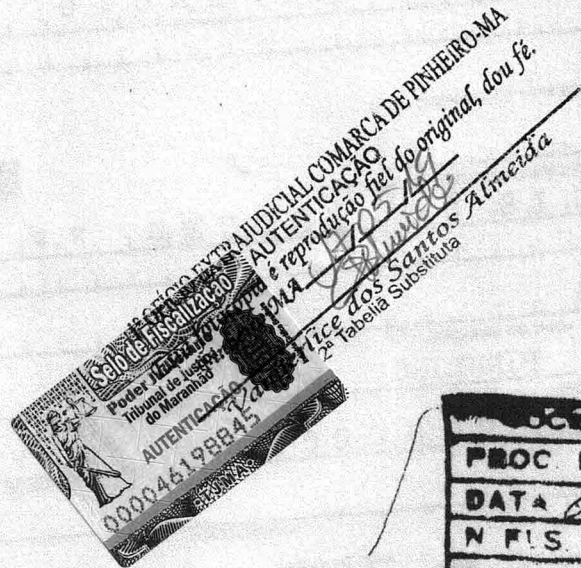 OFÍCIO EXTRAJUDICIAL COMARCA DE PINHEIRO-MA
AUTENTICAÇÃO
é reprodução fiel do original, dou fé.
MA
dos Santos Almeida
2ª Tabeliã Substituta
Selo de Fiscalização
Poder
Tribunal de Justiça
do Maranhão
AUTENTICAÇÃO
000046198845
PROC
DATA
N FLS